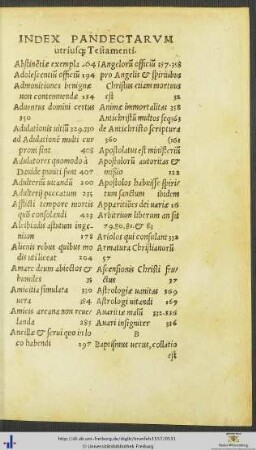 INDEX PANDECTARVM
utriusq; Testamenti.
Abstinētiæ exempla 204
Adolescentiū officiū 194
Admonitiones benignæ
non contemnendæ 214
Aduentus domini certus
250
Adulationis uitiū 329.330
ad Adulationē multi cur
proni sint 406
Adulatores quomodo à
Dauide puniti sunt 407
Adulteriū uitandū 200
Adulterij peccatum 235
Afflicti tempore mortis
quō consolandi 423
Alcibiadis astutum inge-
nium 178
Alienis rebus quibus mo
dis utiliceat 54
Amare deum abiectos &
humiles 35
Amicitia simulata 330
uera 184
Amicis arcana non reue-
landa 285
Ancillæ & serui quo in lo
co habendi 197
Angelorū officiū 357.358
pro Angelis & spiritibus
Christus etiam mortuus
est 32
Animæ immortalitas 358
Antichristū multos sequi 62
de Antichristo scripturæ
360
Apostolatus est ministeriū
Apostolorū autoritas &
missio 122
Apostolos habuisse spiri
tum sanctum ibidem
Apparitiões dei uariæ 16
Arbitrium liberum an sit
79.80.81.& 82
Ariolos qui consulant 332
Armatura Christianorū
57
Ascensionis Christi fru-
ctus 37
Astrologiæ uanitas 269
Astrologi uitandi 169
Auaritiæ malū 332.226
Auari insigniter 326
B
Baptismus uerus, collatio
est
http://dl.ub.uni-freiburg.de/diglit/
© Universitätsbibliothek Freiburg